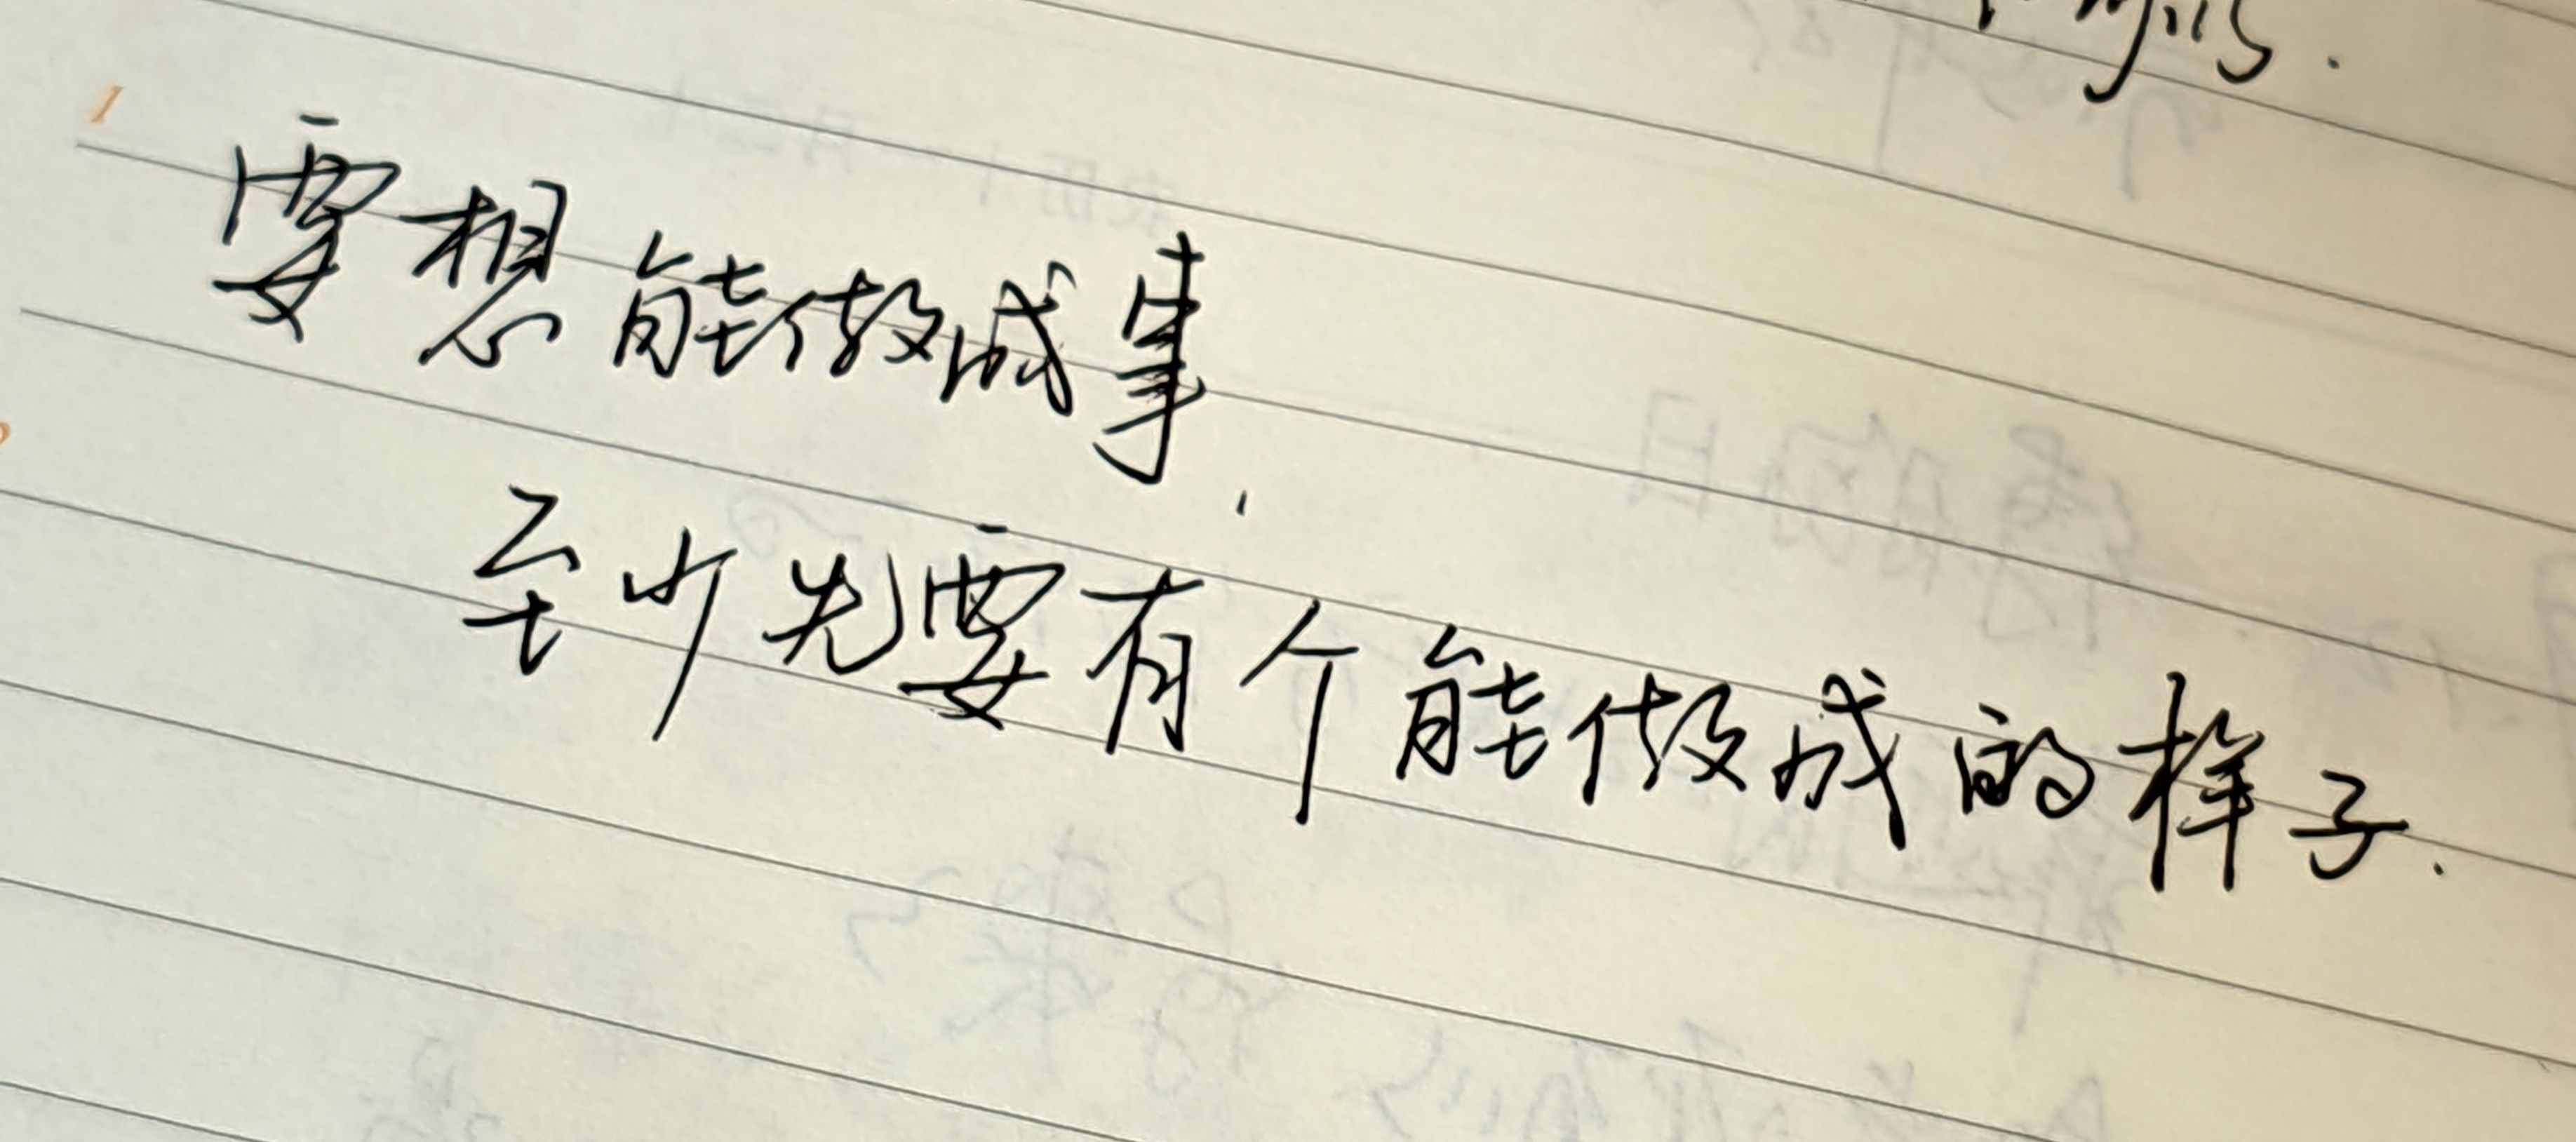 1
要想能做成事，
至少先要有个能做成的样子.